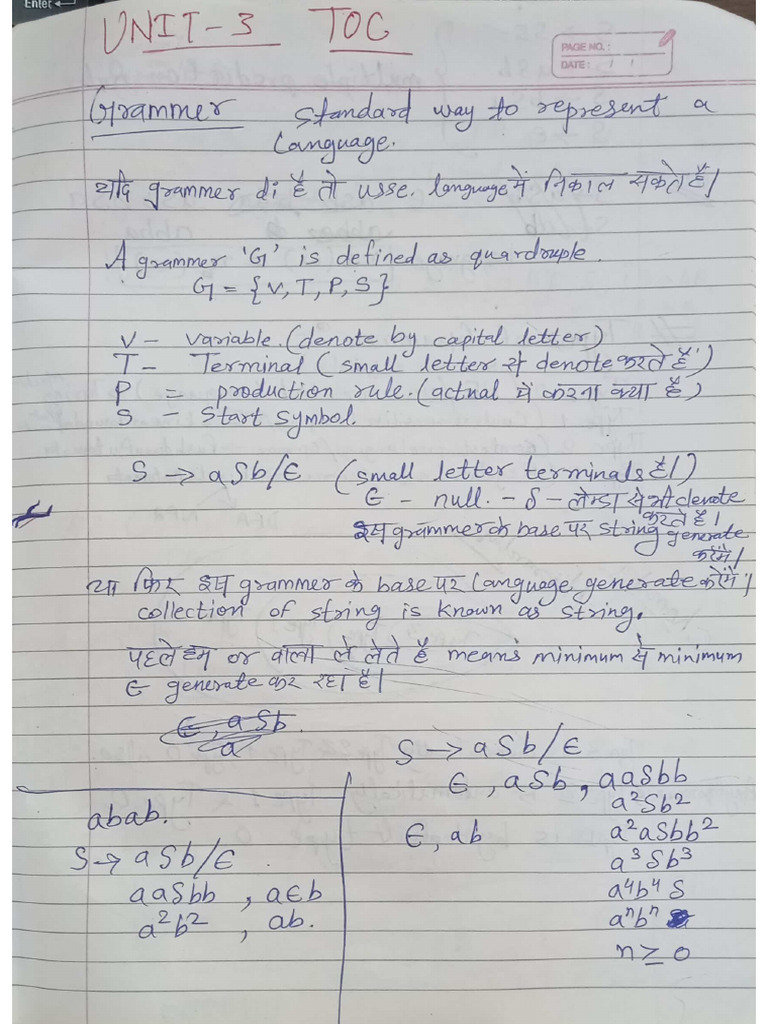 Enter
UNIT-3 TOC
PAGE NO.:
DATE: / /
Grammer Standard way to represent a
Language.
यदि grammer di है तो usse. language में निकाल सकते हैं।
A grammer 'G' is defined as quardruple.
G = {V, T, P, S}
V - variable. (denote by capital letter)
T - Terminal (small letter से denote करते हैं)
P = production rule. (actual में करना क्या है)
S - Start symbol.
S → aSb/ϵ (small letter terminals है।)
ϵ - null. - δ - लेम्डा से भी denote
करते है।
इस grammer के base पर string generate
करेंगे।
या फिर इस grammer के base पर Language generate करेंगे।
collection of string is known as string.
पहले हम or वाला ले लेते है means minimum से minimum
ϵ generate कर रहा है।
S → aSb/ϵ
ϵ, aSb, aaSbb
a²Sb²
ϵ, ab a²aSbb²
a³Sb³
a⁴b⁴ S
aⁿbⁿ
n ≥ 0
abab.
S → aSb/ϵ.
aaSbb, aϵb
a²b², ab.